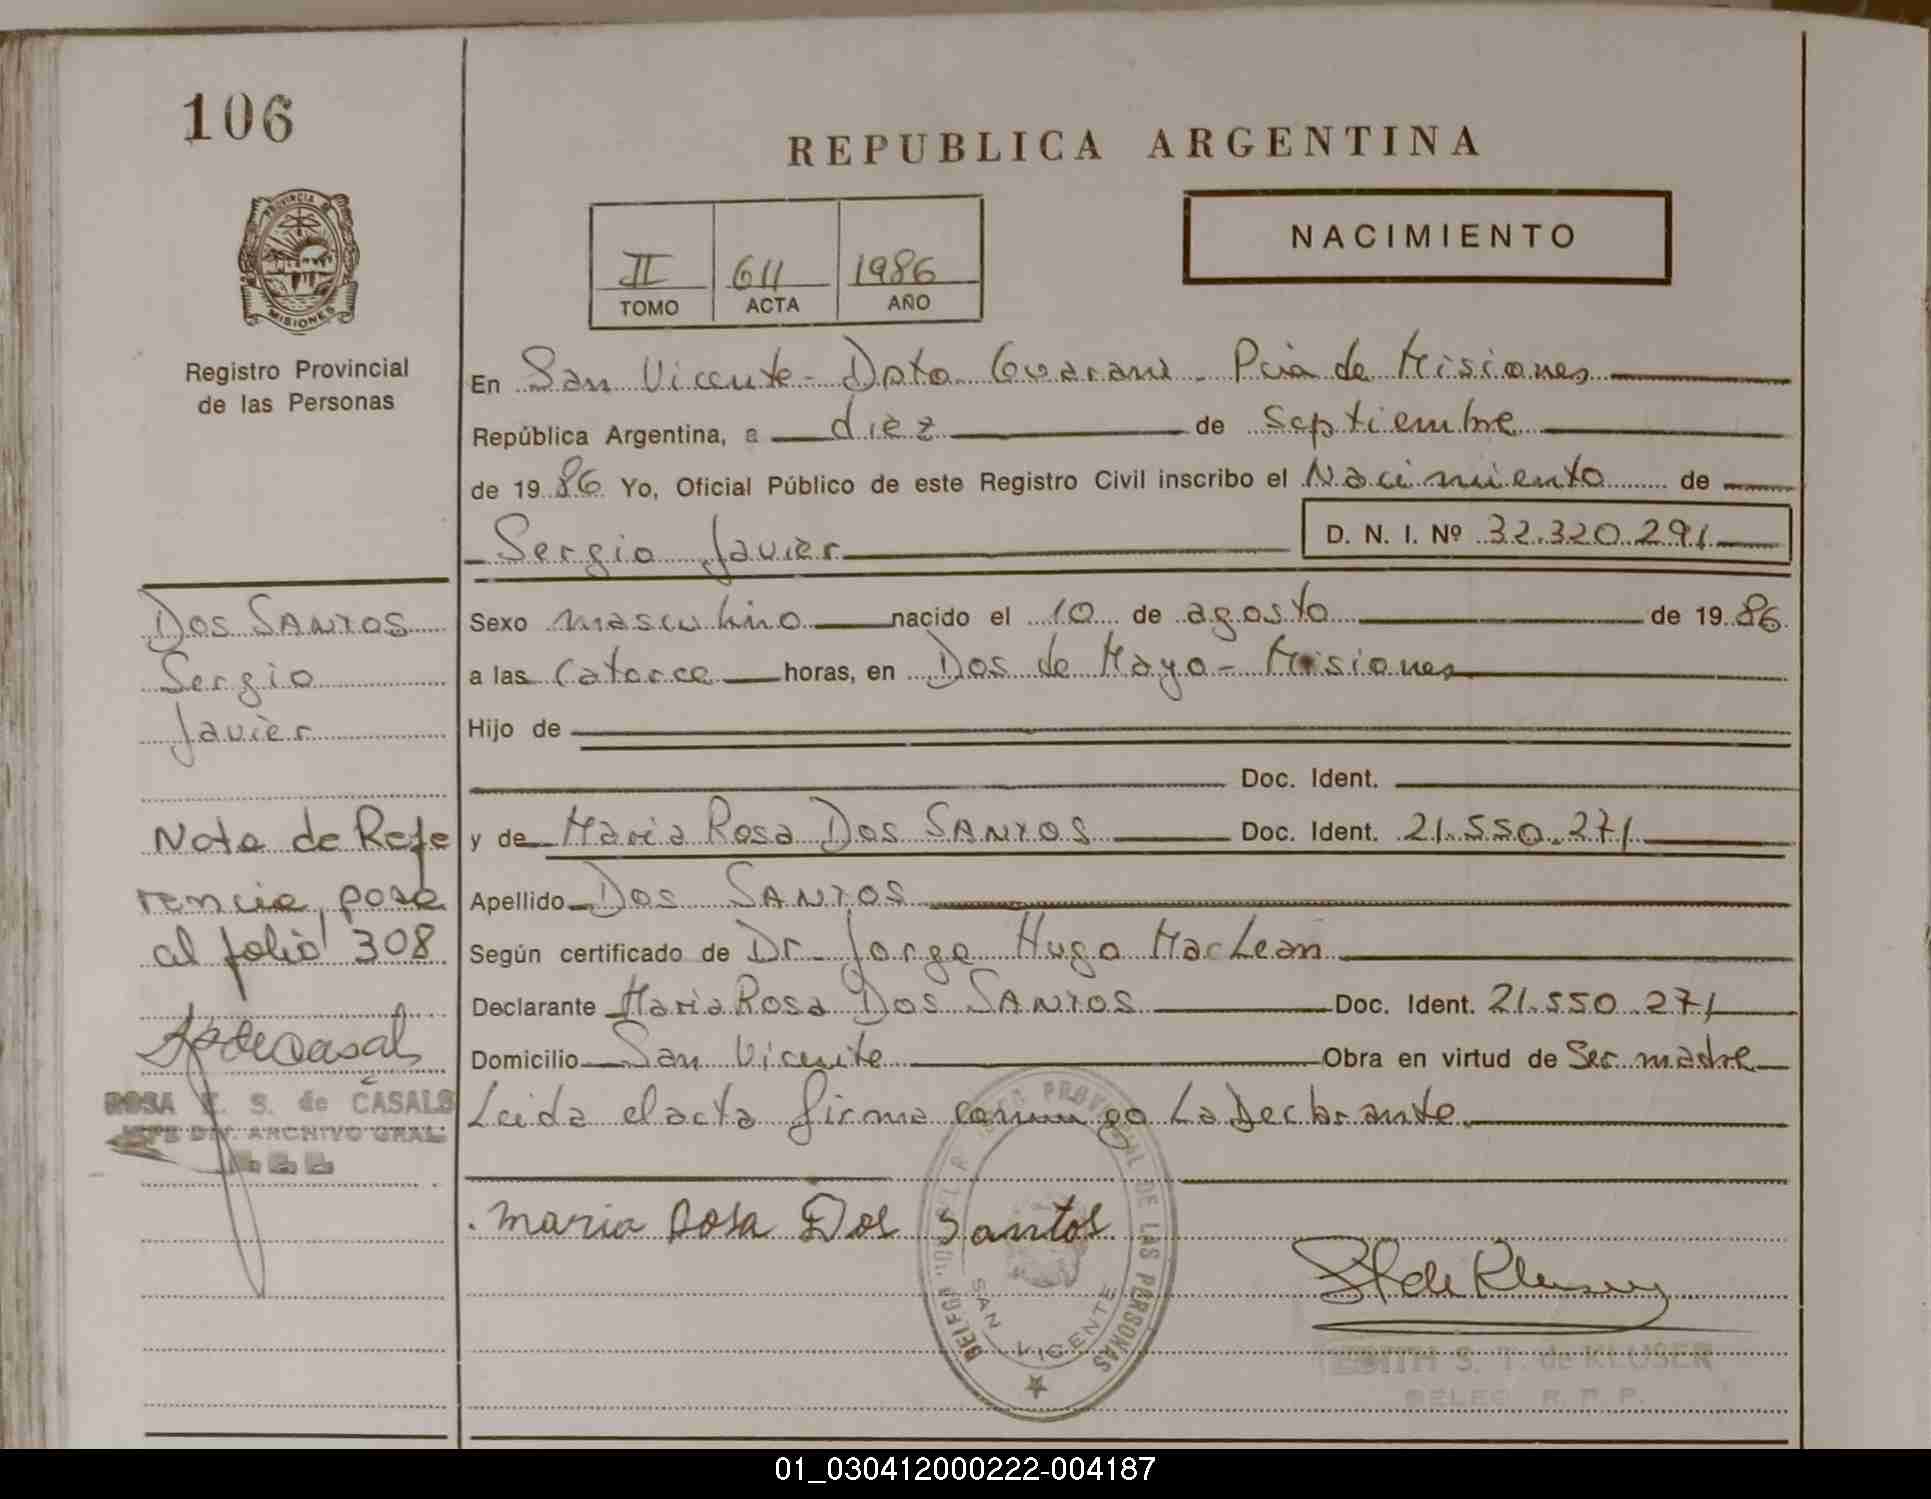 106
REPUBLICA ARGENTINA
PROVINCIA
MISIONES
Registro Provincial
de las Personas
NACIMIENTO
II 611 1986
TOMO ACTA AÑO
En San Vicente - Dpto. Guarani - Pcia de Misiones
República Argentina, a diez de Septiembre
de 1986 Yo, Oficial Público de este Registro Civil inscribo el Nacimiento de
Sergio Javier D. N. I. Nº 32.320.291
Sexo masculino nacido el 10 de agosto de 1986
a las Catorce horas, en Dos de Mayo - Misiones
Hijo de
Doc. Ident.
y de Maria Rosa Dos SANTOS Doc. Ident. 21.550.271
Apellido Dos SANTOS
Según certificado de Dr. Jorge Hugo MacLean
Declarante Maria Rosa Dos SANTOS Doc. Ident. 21.550.271
Domicilio San Vicente Obra en virtud de Ser madre
Leida el acta firma conmigo La Declarante
maria Rosa Dos Santos
DOS SANTOS
Sergio
Javier
Nota de Refe
rencia, pasa
al folio 308
ROSA E. S. de CASALS
JEFE DIV. ARCHIVO GRAL.
PROVINCIAL DE LAS PERSONAS
SAN VICENTE
EDITH S. T. de KLUSER
DELEG. R. P. P.
01_030412000222-004187